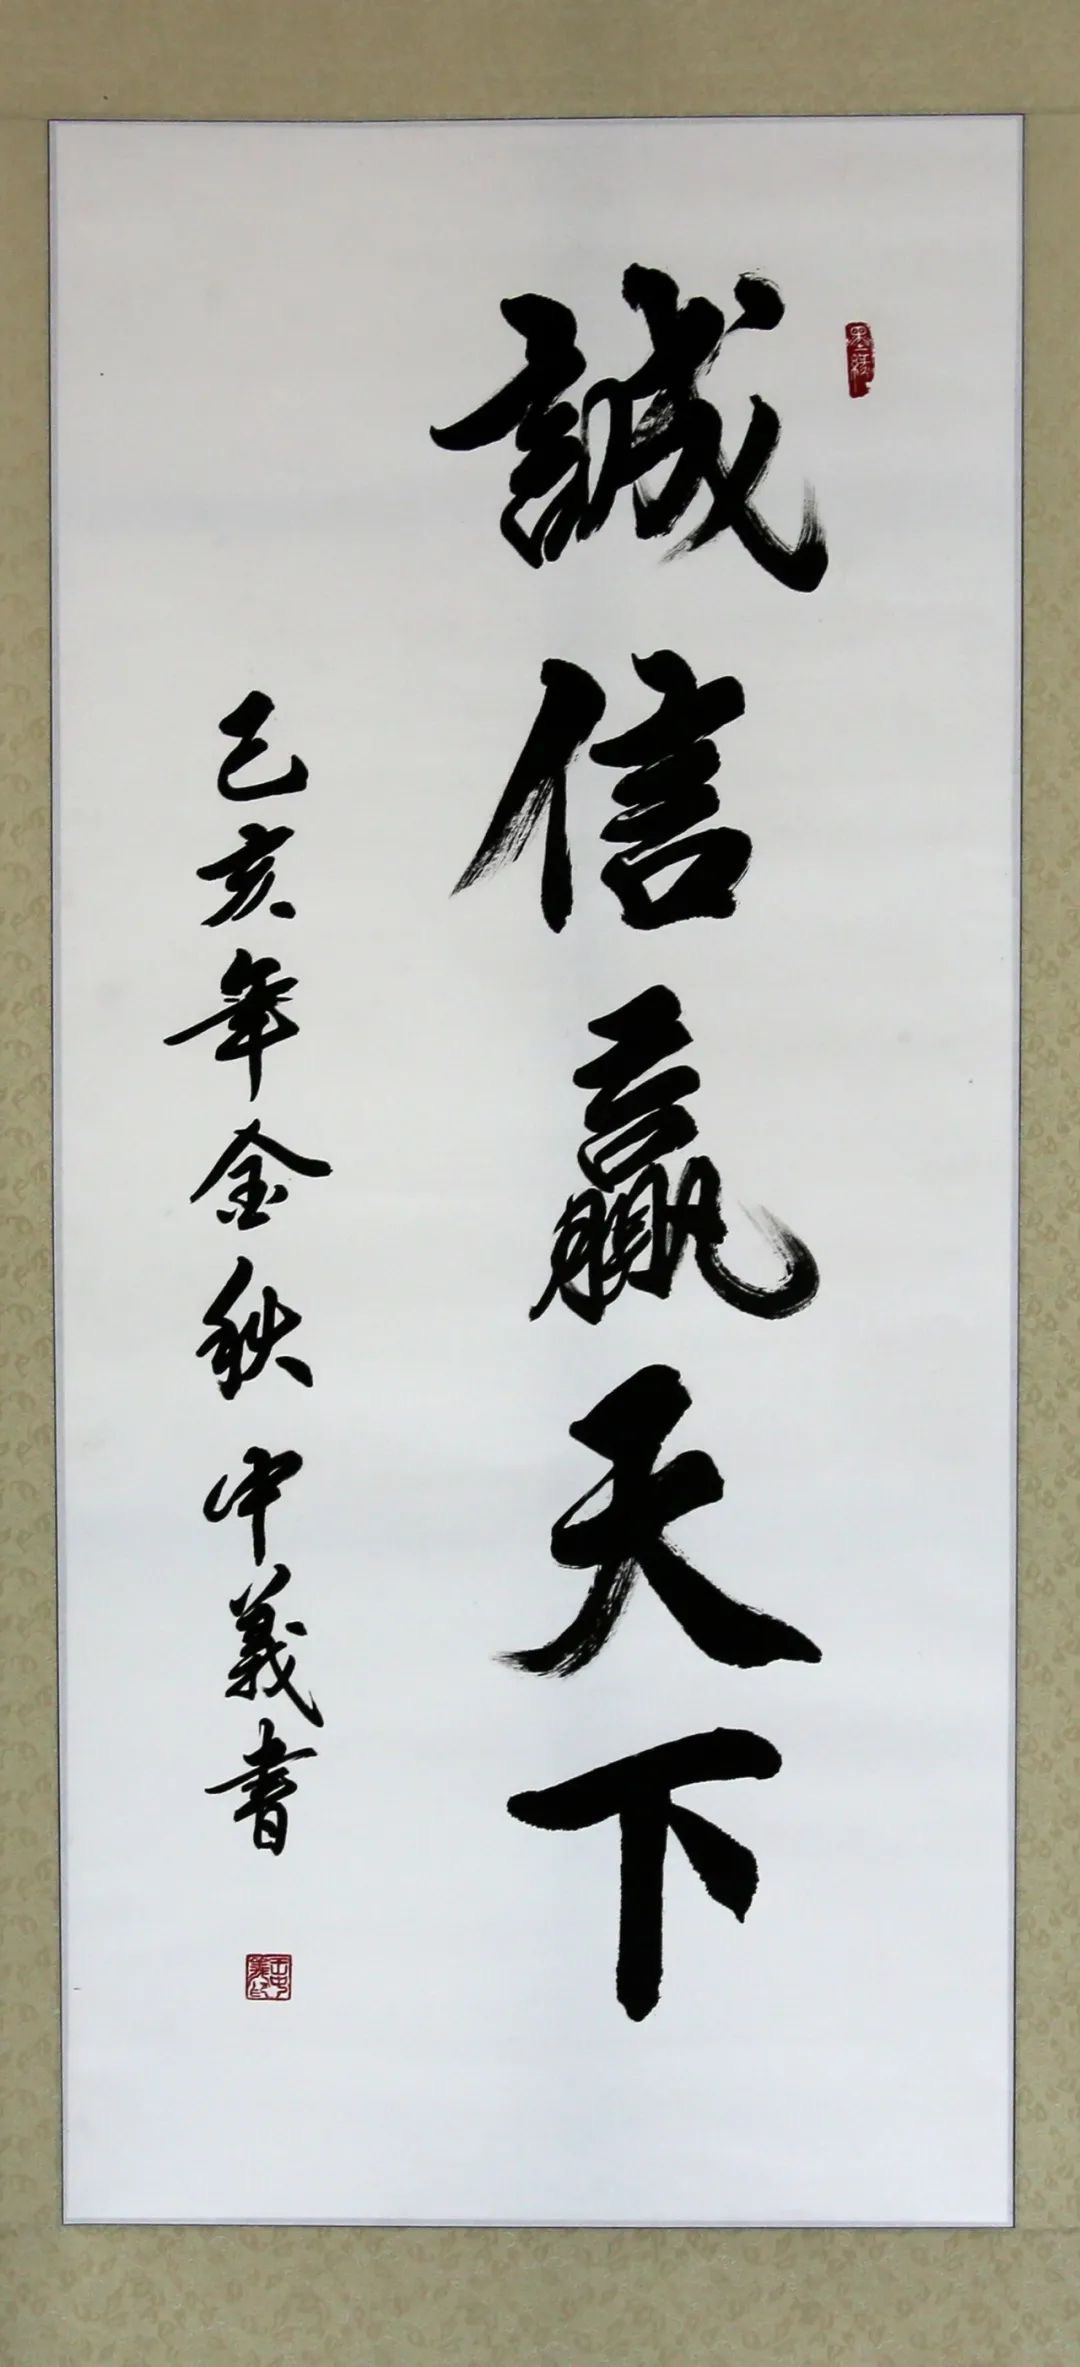 誠信贏天下
己亥年金秋 中義書
墨緣